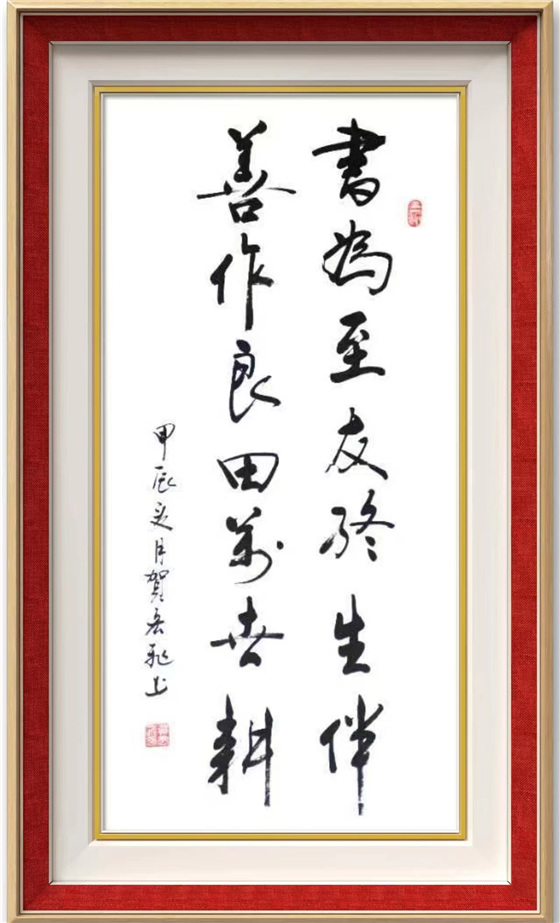 書為至友終生伴
善作良田萬世耕
甲辰夏月賀